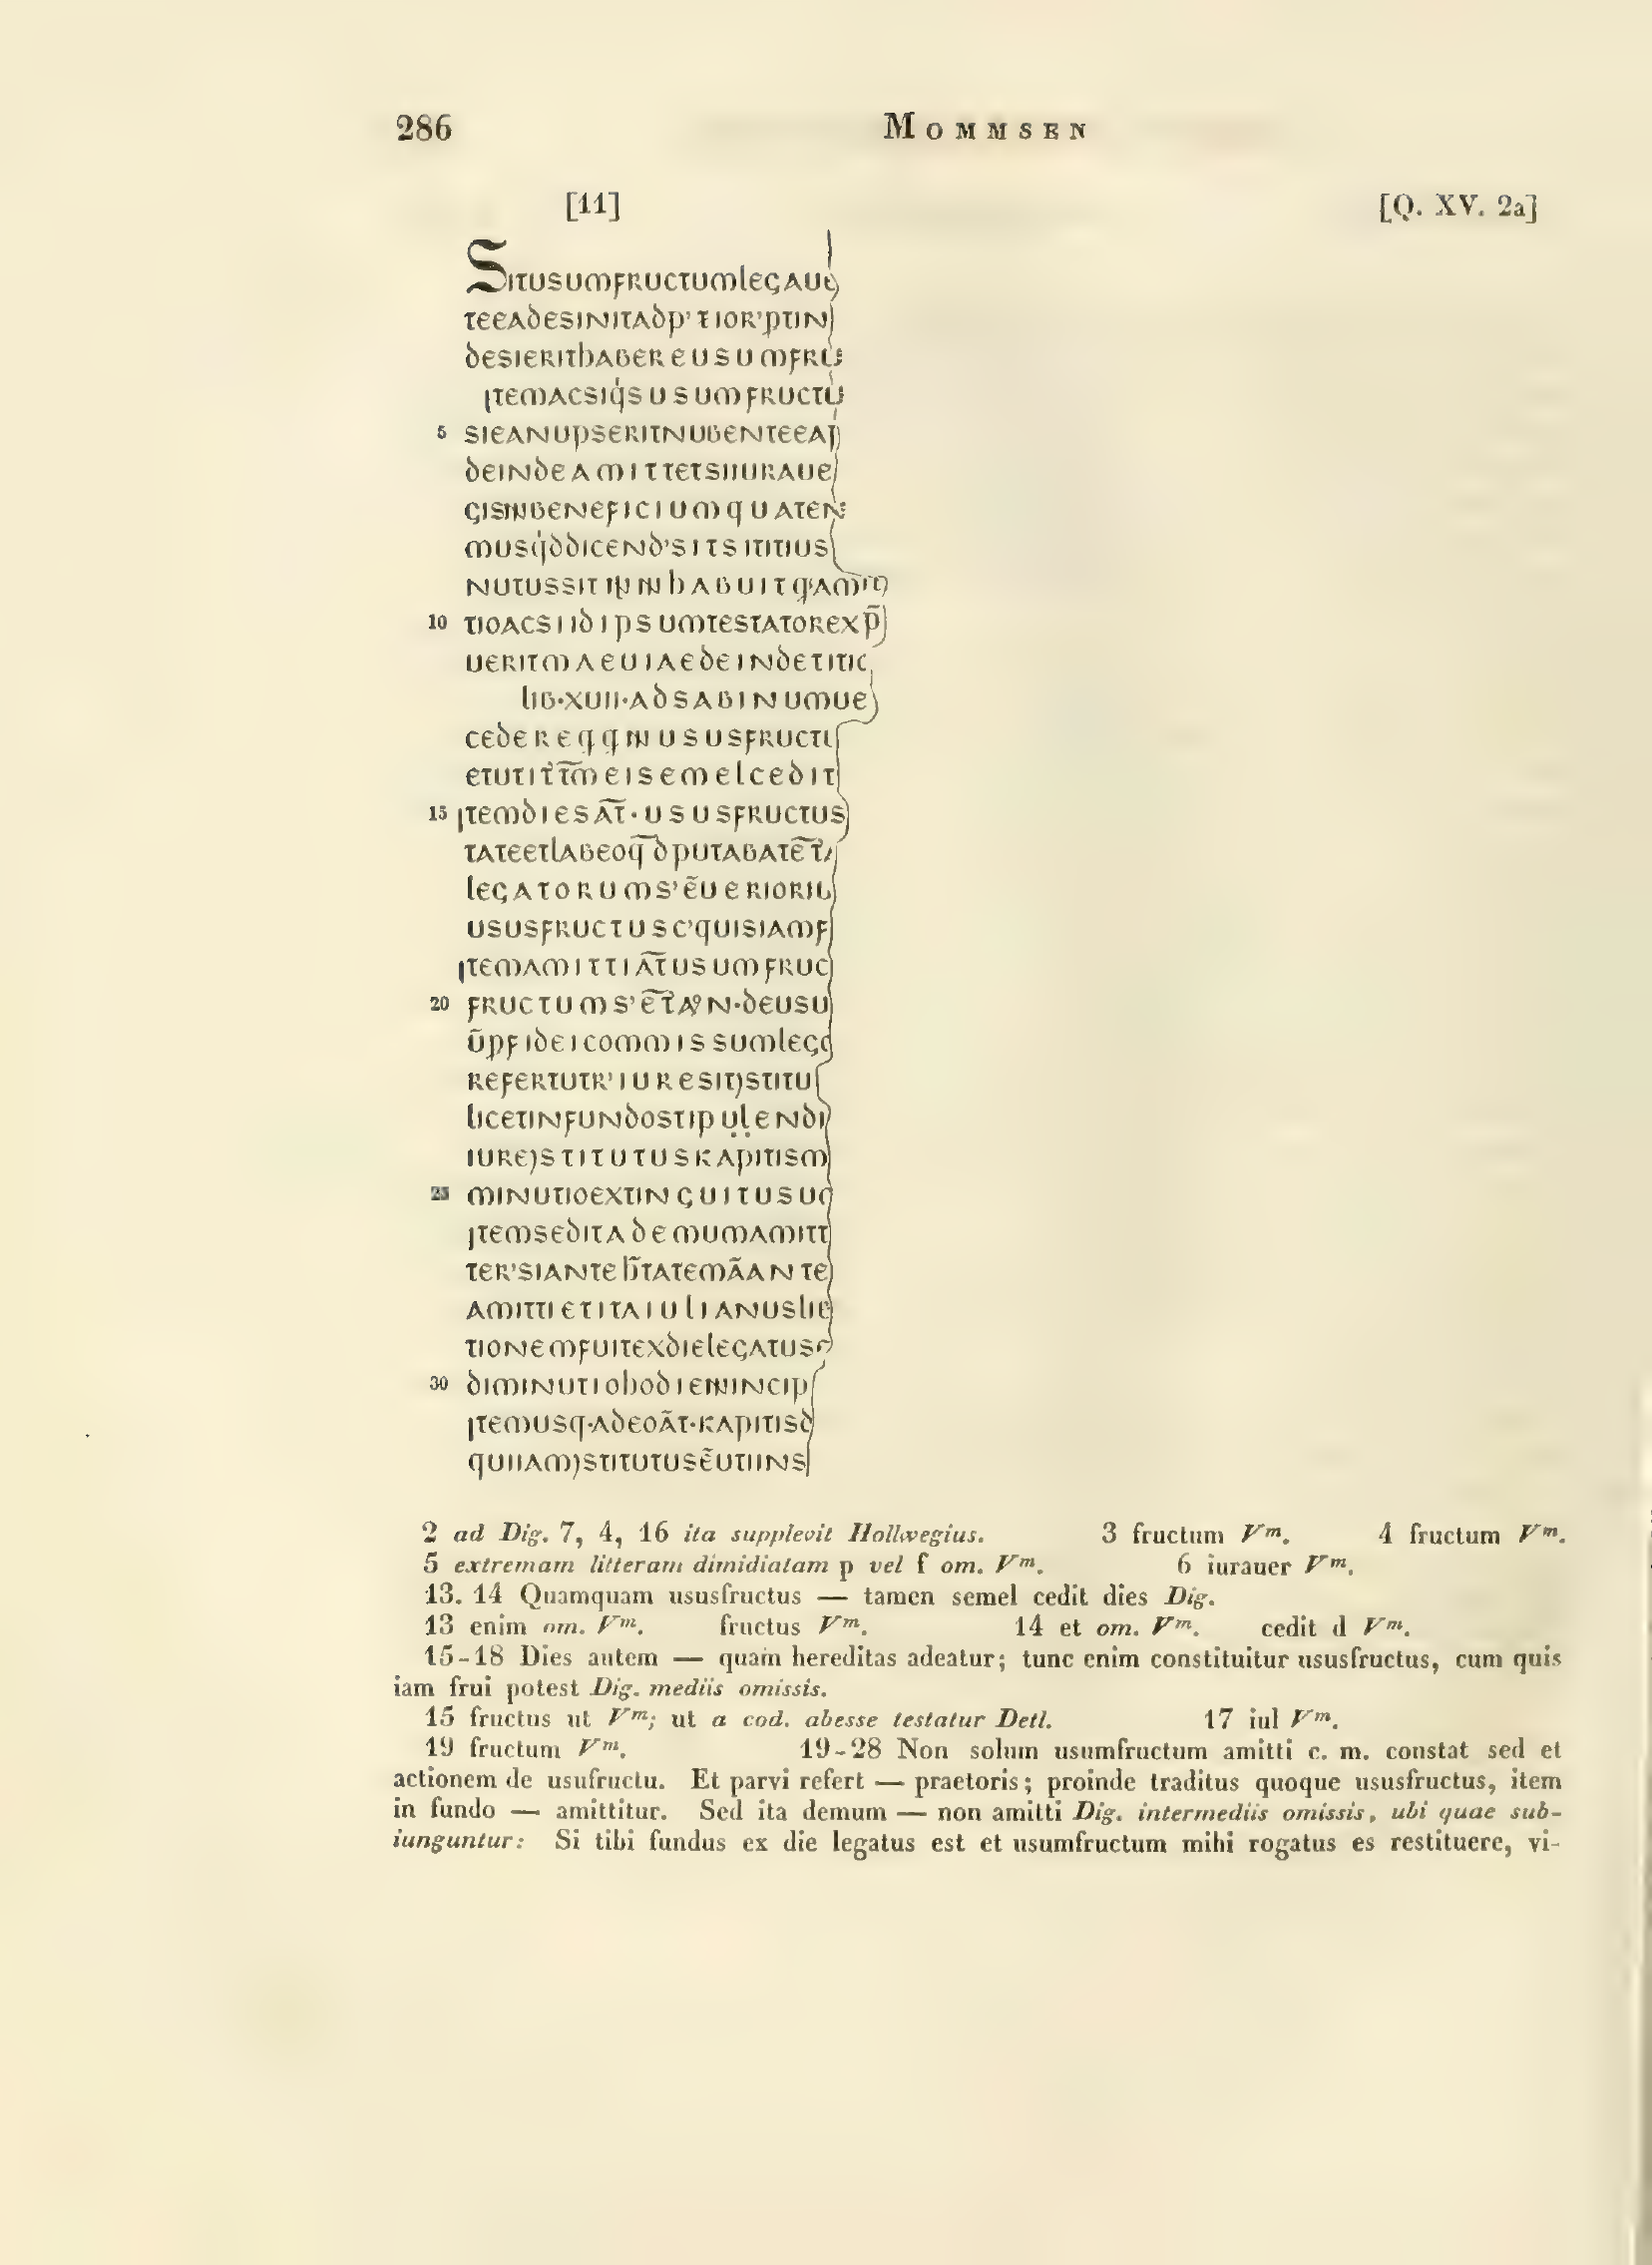 286 MOMMSEN
[11] [Q. XV. 2a]
SITUSUMFRUCTUMLEGAUE
TEEADESINITADP'TIOR'PTIN
DESIERITHABEREUSUMFRU
ITEMACSIQSUSUMFRUCTU
5 SIEANUPSERITNUBENTEEAP
DEINDEAMITTETSIIURAUE
GISINBENEFICIUMQUATEN
MUSQDDICEND'SITSITITIUS
NUTUSSIT HABUIT
10 TIOACSIIDIPSUMTESTATOREXP̄
UERITMAEUIAEDEINDETITIC
LIB·XUII·ADSABINUMUE
CEDEREQQ USUSFRUCTU
ETUTITT̄M̄EISEMELCEDIT
15 ITEMDIESĀT̄·USUSFRUCTUS
TATEETLABEOQ̄DPUTABATE̅T̅
LEGATORUMS'ĒUERIORIU
USUSFRUCTUSC'QUISIAMF
ITEMAMITTIĀT̄USUMFRUC
20 FRUCTUMS'ĒT̄ N·DEUSU
ŪPFIDEICOMMISSUMLEGO
REFERTUTR'IURESIT)STITU
LICETINFUNDOSTIPỤḶENDI
IURE)STITUTUSKAPITISM
25 MINUTIOEXTINGUITUSUO
ITEMSEDITADEMUMAMITT
TER'SIANTEH̄TATEMĀANTE
AMITTIETITAIULIANUSLIB
TIONEMFUITEXDIELEGATUS
30 DIMINUTIOHODIENINCIP
ITEMUSQ·ADEOĀT·KAPITISD
QUIIAM)STITUTUSĒUTIINS
2 ad Dig. 7, 4, 16 ita supplevit Hollwegius. 3 fructum Vm. 4 fructum Vm.
5 extremam litteram dimidiatam p vel f om. Vm. 6 iurauer Vm.
13. 14 Quamquam ususfructus — tamen semel cedit dies Dig.
13 enim om. Vm. fructus Vm. 14 et om. Vm. cedit d Vm.
15-18 Dies autem — quam hereditas adeatur; tunc enim constituitur ususfructus, cum quis
iam frui potest Dig. mediis omissis.
15 fructus ut Vm; ut a cod. abesse testatur Detl. 17 iul Vm.
19 fructum Vm. 19-28 Non solum usumfructum amitti c. m. constat sed et
actionem de usufructu. Et parvi refert — praetoris; proinde traditus quoque ususfructus, item
in fundo — amittitur. Sed ita demum — non amitti Dig. intermediis omissis, ubi quae sub-
iunguntur: Si tibi fundus ex die legatus est et usumfructum mihi rogatus es restituere, vi-